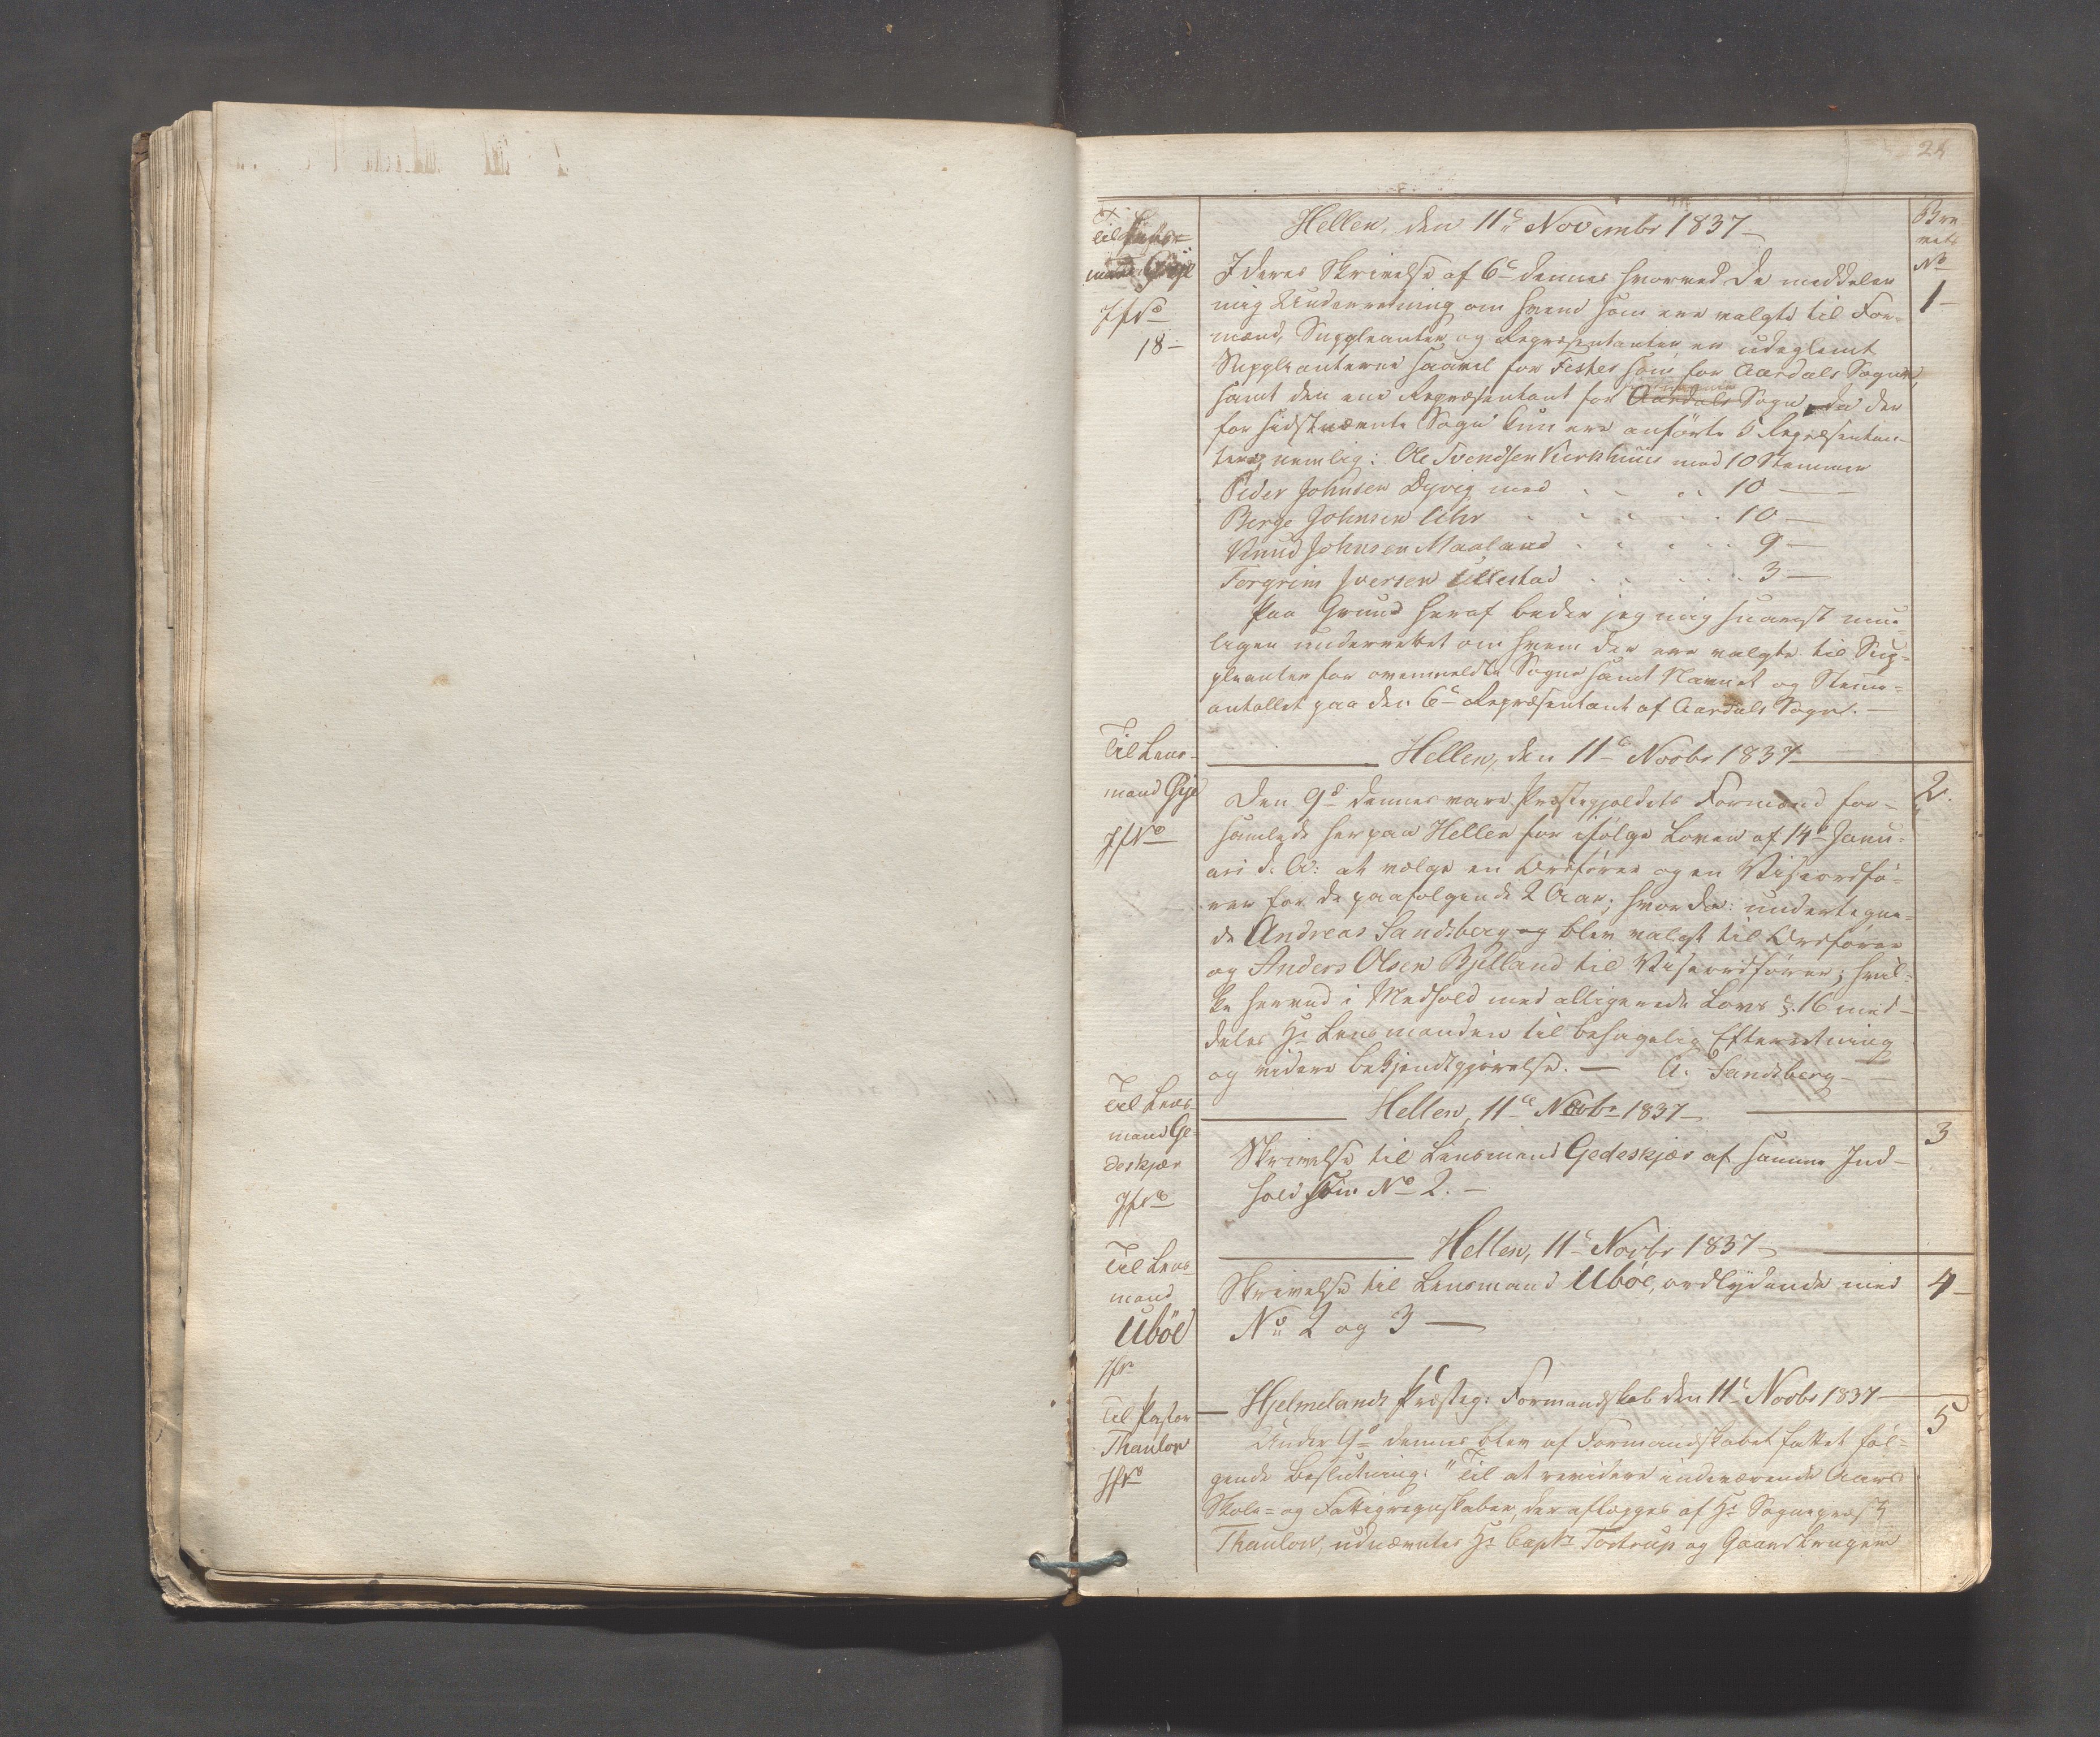 24
Hellen, den 11te Novembr 1837
Bre
vets
No
Til Lens-
mand Øye
JfNo
18
1
I deres Skrivelse af 6te dennes hvorved De meddeler
mig Underretning om hvem som ere valgte til For-
mænd, Suppleanter og Repræsentanter er udeglemt
Suppleanterne saavel for Fister som for Aardals Sogne,
samt den ene Repræsentant for Aardals Sogn, da der
for sidstnævnte Sogn kun ere anførte 5 Repræsentan-
ter, nemlig: Ole Svendsen Kirkhuus med 10 Stemmer
Peder Johnsen Dyvig med 10 —
Berge Johnsen Uhr 10 —
Knud Johnsen Maaland 9 —
Torgrim Iversen Ullestad 3 —
Paa Grund heraf beder jeg mig snarest mu-
ligen underrettet om hvem der ere valgte til Sup-
pleanter for ovenmeldte Sogne samt Navnet og Stemme-
antallet paa den 6te Repræsentant af Aardals Sogn. —
Til Lens-
mand Øye
JfNo
Hellen, den 11te Novbr 1837
2.
Den 9de dennes vare Præstegjeldets Formænd for-
samlede her paa Hellen for ifølge Loven af 14de Janu-
ari d. A: at vælge en Ordfører og en Viseordfø-
rer for de paafølgende 2 Aar; hvor da: undertegne-
de Andreas Sandsberg og blev valgt til Ordfører
og Anders Olsen Bjelland til Viseordfører; hvil-
ke herved i Medhold med allegerede Lovs §. 16 med-
deles Hr Lensmanden til behagelig Efterretning
og videre bekjendtgjørelse. — A. Sandsberg —
Til Lens-
mand Ge-
deskjær
JfNo
Hellen, 11te Novbr 1837
3
Skrivelse til Lensmand Gedeskjær af samme Ind-
hold som No 2. —
Til Lens-
mand
Ubøe
JfNo
Hellen, 11te Novbr 1837
4
Skrivelse til Lensmand Ubøe, ordlydende med
No 2 og 3 —
Til Pastor
Thaulow
JfNo
Hjelmelands Præsteg: Formandskab den 11te Novbr 1837
5
Under 9de dennes blev af Formandskabet fattet føl-
gende Beslutning: "Til at revidere indeværende Aars
Skole- og Fattigregnskaber, der aflægges af Hr Sognepræst
Thaulow, udnævntes Hr Capt: Tostrup og Gaardbrugern